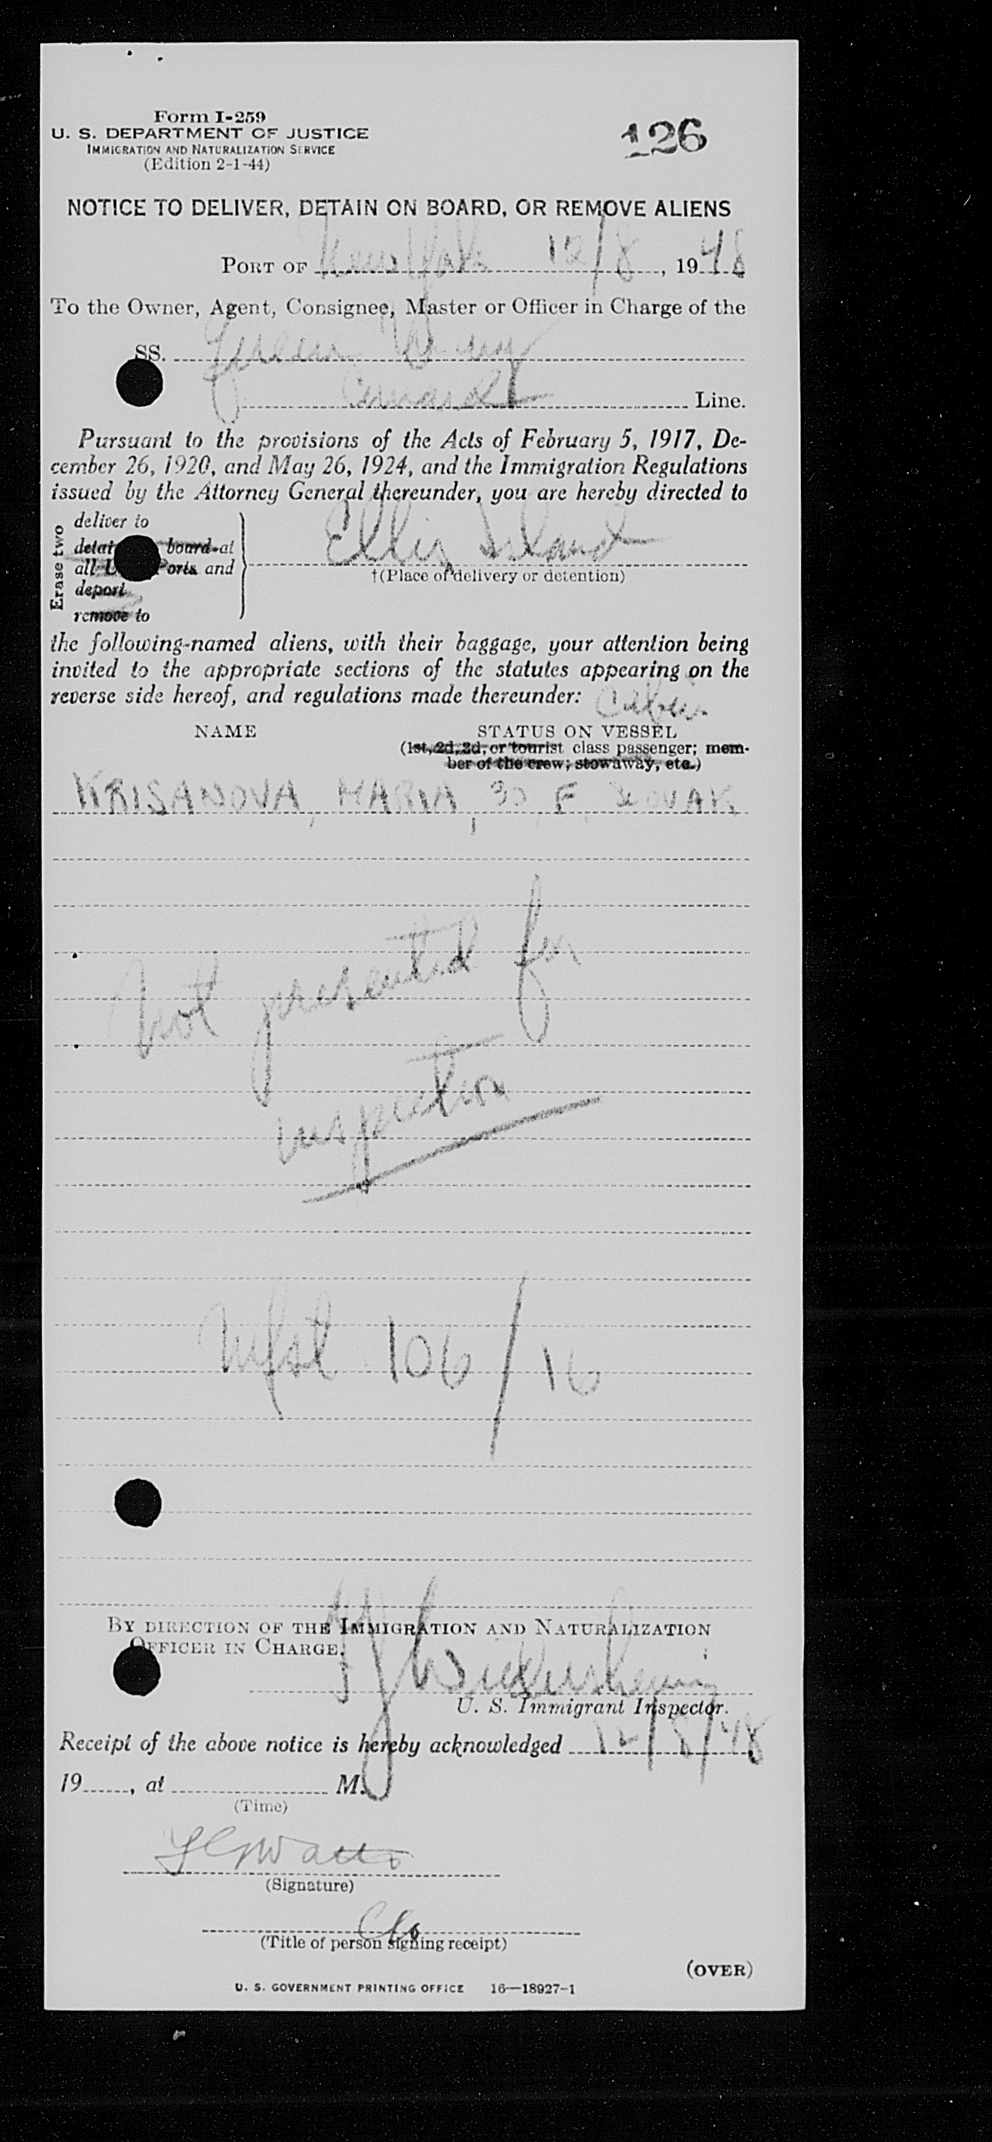 Form I-259
U. S. DEPARTMENT OF JUSTICE
IMMIGRATION AND NATURALIZATION SERVICE
(Edition 2-1-44)
126
NOTICE TO DELIVER, DETAIN ON BOARD, OR REMOVE ALIENS
PORT OF New York 12/8, 1948
To the Owner, Agent, Consignee, Master or Officer in Charge of the
SS.
Cunard Line.
Pursuant to the provisions of the Acts of February 5, 1917, De-
cember 26, 1920, and May 26, 1924, and the Immigration Regulations
issued by the Attorney General thereunder, you are hereby directed to
Erase two
deliver to
board at
all Ports and
deport
remove to
Ellis Island
†(Place of delivery or detention)
the following-named aliens, with their baggage, your attention being
invited to the appropriate sections of the statutes appearing on the
reverse side hereof, and regulations made thereunder: Cabin
NAME STATUS ON VESSEL
(1st, 2d, 3d, or tourist class passenger; mem-
ber of the crew; stowaway, etc.)
KRISANOVA, MARIA, 30 F. SLOVAK
Not presented for
inspection
Mfst 106/16
BY DIRECTION OF THE IMMIGRATION AND NATURALIZATION
OFFICER IN CHARGE.
U. S. Immigrant Inspector.
Receipt of the above notice is hereby acknowledged 12/8/48
19......, at .................... M.
(Time)
(Signature)
(Title of person signing receipt)
(OVER)
U. S. GOVERNMENT PRINTING OFFICE 16—18927-1